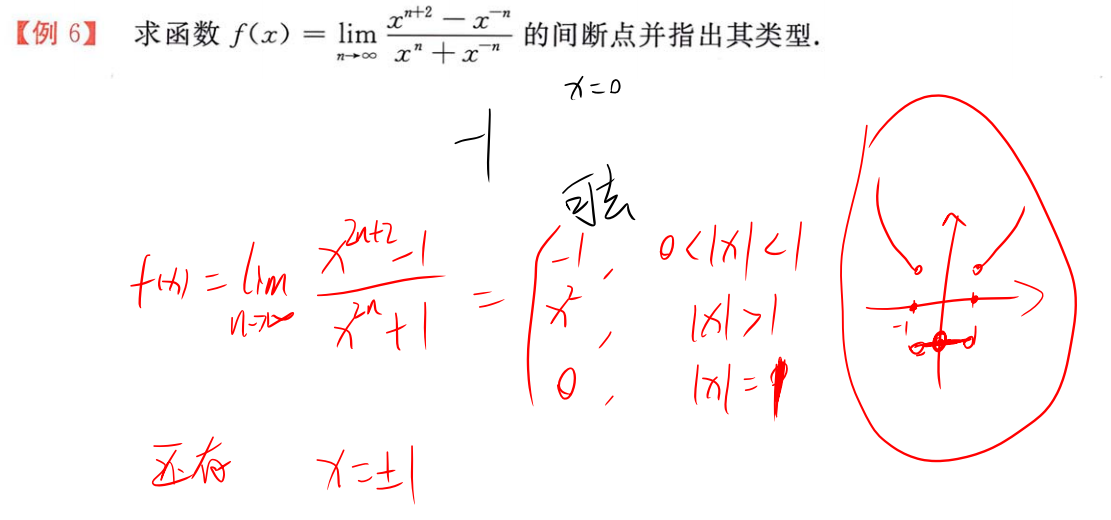 【例 6】 求函数 f(x) = lim_{n→∞} \frac{x^{n+2} - x^{-n}}{x^n + x^{-n}} 的间断点并指出其类型.
x=0
-1
可去
f(x) = lim_{n→∞} \frac{x^{2n+2}-1}{x^{2n}+1} = { -1, 0<|x|<1
x^2, |x|>1
0, |x|=1
-1
还有 x=±1